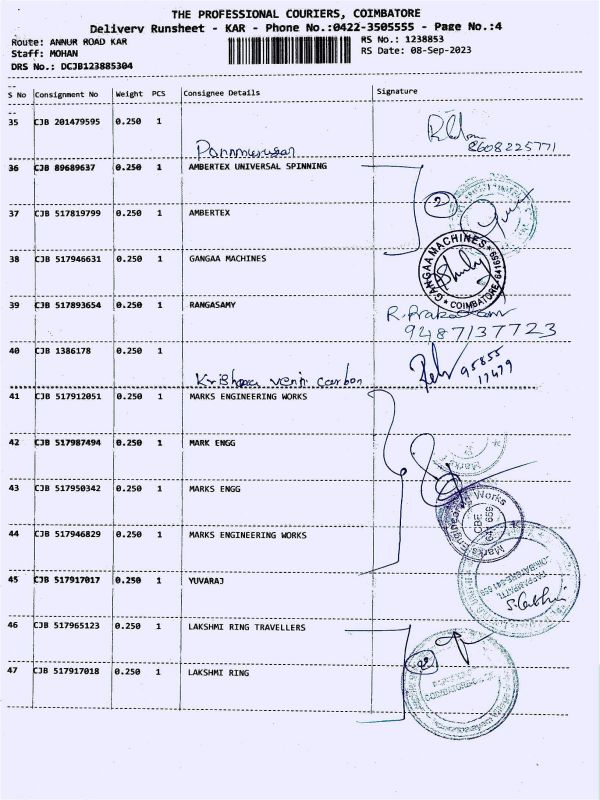 THE PROFESSIONAL COURIERS, COIMBATORE
Delivery Runsheet - KAR - Phone No.:0422-3505555 - Page No.:4
Route: ANNUR ROAD KAR
RS No.: 1238853
Staff: MOHAN
RS Date: 08-Sep-2023
DRS No.: DCJB123885304
S No Consignment No Weight PCS Consignee Details Signature
35 CJB 201479595 0.250 1
8608225771
36 CJB 89689637 0.250 1 AMBERTEX UNIVERSAL SPINNING
2
37 CJB 517819799 0.250 1 AMBERTEX
38 CJB 517946631 0.250 1 GANGAA MACHINES
GANGAA MACHINES COIMBATORE 641659
39 CJB 517893654 0.250 1 RANGASAMY
9487137722 3
40 CJB 1386178 0.250 1
Krishna carbon
95855
17479
41 CJB 517912051 0.250 1 MARKS ENGINEERING WORKS
42 CJB 517987494 0.250 1 MARK ENGG
43 CJB 517950342 0.250 1 MARKS ENGG
Marks Engineering Works
CBE
641 659
44 CJB 517946829 0.250 1 MARKS ENGINEERING WORKS
45 CJB 517917017 0.250 1 YUVARAJ
46 CJB 517965123 0.250 1 LAKSHMI RING TRAVELLERS
47 CJB 517917018 0.250 1 LAKSHMI RING